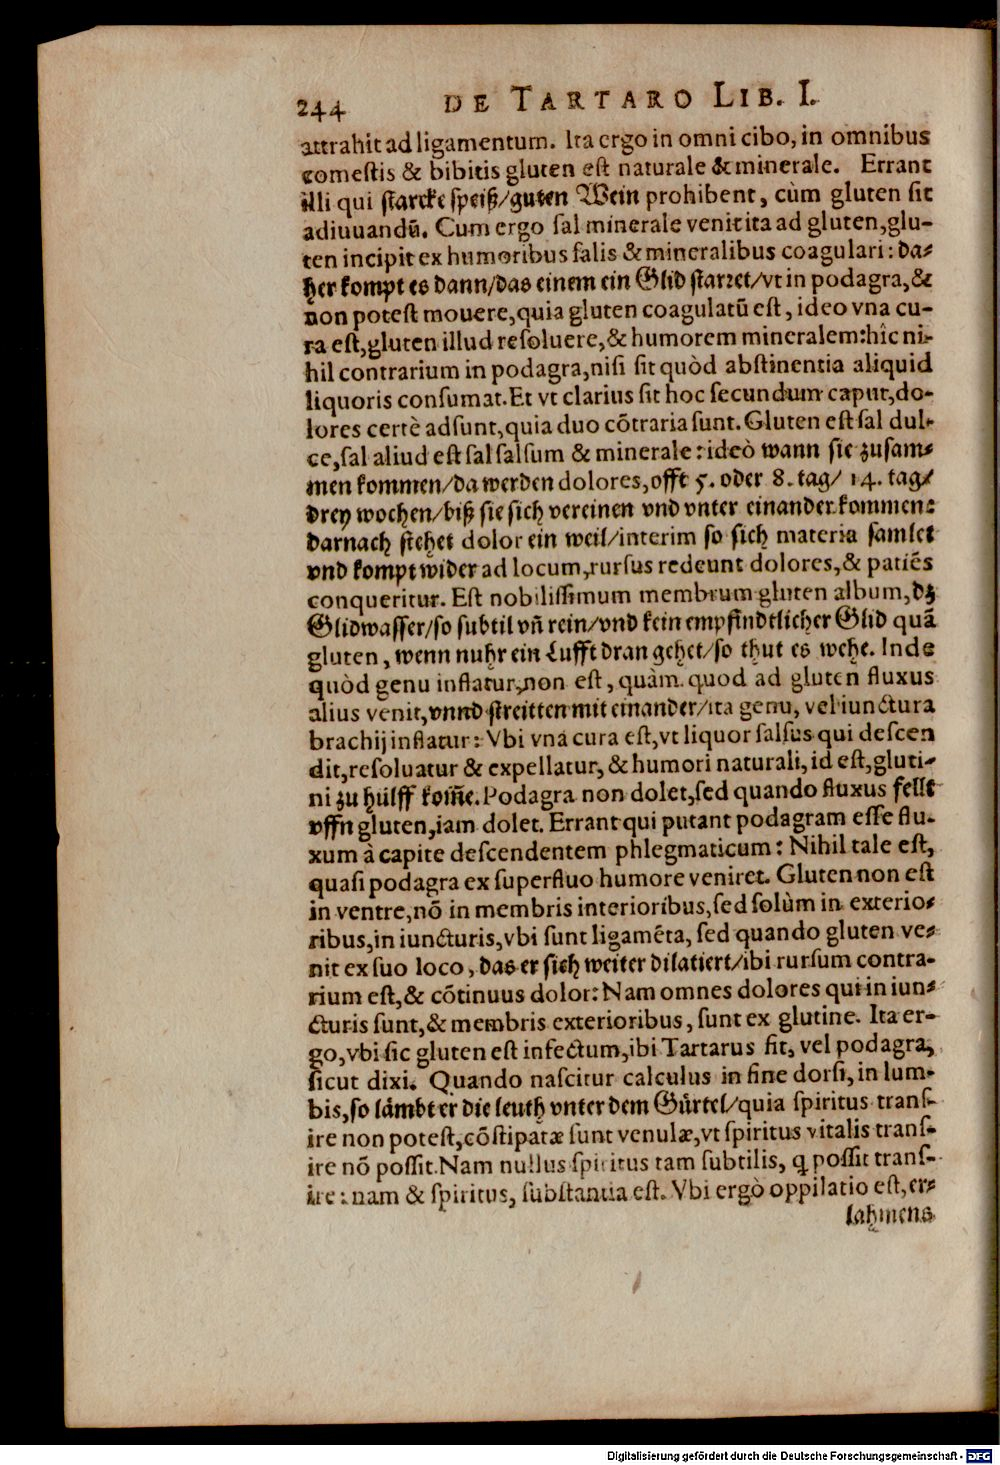 244 DE TARTARO LIB. I.
attrahit ad ligamentum. Ita ergo in omni cibo, in omnibus
comestis & bibitis gluten est naturale & minerale. Errant
illi qui starcke speiß/guten Wein prohibent, cùm gluten sit
adiuuandū. Cum ergo sal minerale venit ita ad gluten, glu-
ten incipit ex humoribus salis & mineralibus coagulari: da-
her kompt es dann/das einem ein Glid starret/vt in podagra, &
non potest mouere, quia gluten coagulatū est, ideo vna cu-
ra est, gluten illud resoluere, & humorem mineralem: hîc ni-
hil contrarium in podagra, nisi sit quòd abstinentia aliquid
liquoris consumat. Et vt clarius sit hoc secundum caput, do-
lores certè adsunt, quia duo cōtraria sunt. Gluten est sal dul-
ce, sal aliud est sal salsum & minerale: ideò wann sie zusam-
men kommen/da werden dolores, offt 5. oder 8. tag/ 14. tag/
drey wochen/biß sie sich vereinen vnd vnter einander kommen:
darnach stehet dolor ein weil/interim so sich materia samlet
vnd kompt wider ad locum, rursus redeunt dolores, & patiēs
conqueritur. Est nobilissimum membrum gluten album, dz
Glidwasser/so subtil vñ rein/vnd kein empfindtlicher Glid quā
gluten, wenn nuhr ein Lufft dran gehet/so thut es wehe. Inde
quòd genu inflatur, non est, quàm quod ad gluten fluxus
alius venit, vnnd streitten mit einander/ita genu, vel iunctura
brachij inflatur: Vbi vna cura est, vt liquor salsus qui descen
dit, resoluatur & expellatur, & humori naturali, id est, gluti-
ni zu hülff kom̄e. Podagra non dolet, sed quando fluxus fellt
vffn gluten, iam dolet. Errant qui putant podagram esse flu-
xum à capite descendentem phlegmaticum: Nihil tale est,
quasi podagra ex superfluo humore veniret. Gluten non est
in ventre, nō in membris interioribus, sed solùm in exterio-
ribus, in iuncturis, vbi sunt ligamēta, sed quando gluten ve-
nit ex suo loco, das er sich weiter dilatiert/ibi rursum contra-
rium est, & cōtinuus dolor: Nam omnes dolores qui in iun-
cturis sunt, & membris exterioribus, sunt ex glutine. Ita er-
go, vbi sic gluten est infectum, ibi Tartarus fit, vel podagra,
sicut dixi. Quando nascitur calculus in fine dorsi, in lum-
bis, so lämbt er die leuth vnter dem Gürtel/quia spiritus trans-
ire non potest, cōstipatæ sunt venulæ, vt spiritus vitalis trans-
ire nō possit. Nam nullus spiritus tam subtilis, q̨ possit trans-
ire: nam & spiritus, substantia est. Vbi ergò oppilatio est, er-
lahmens
Digitalisierung gefördert durch die Deutsche Forschungsgemeinschaft - DFG